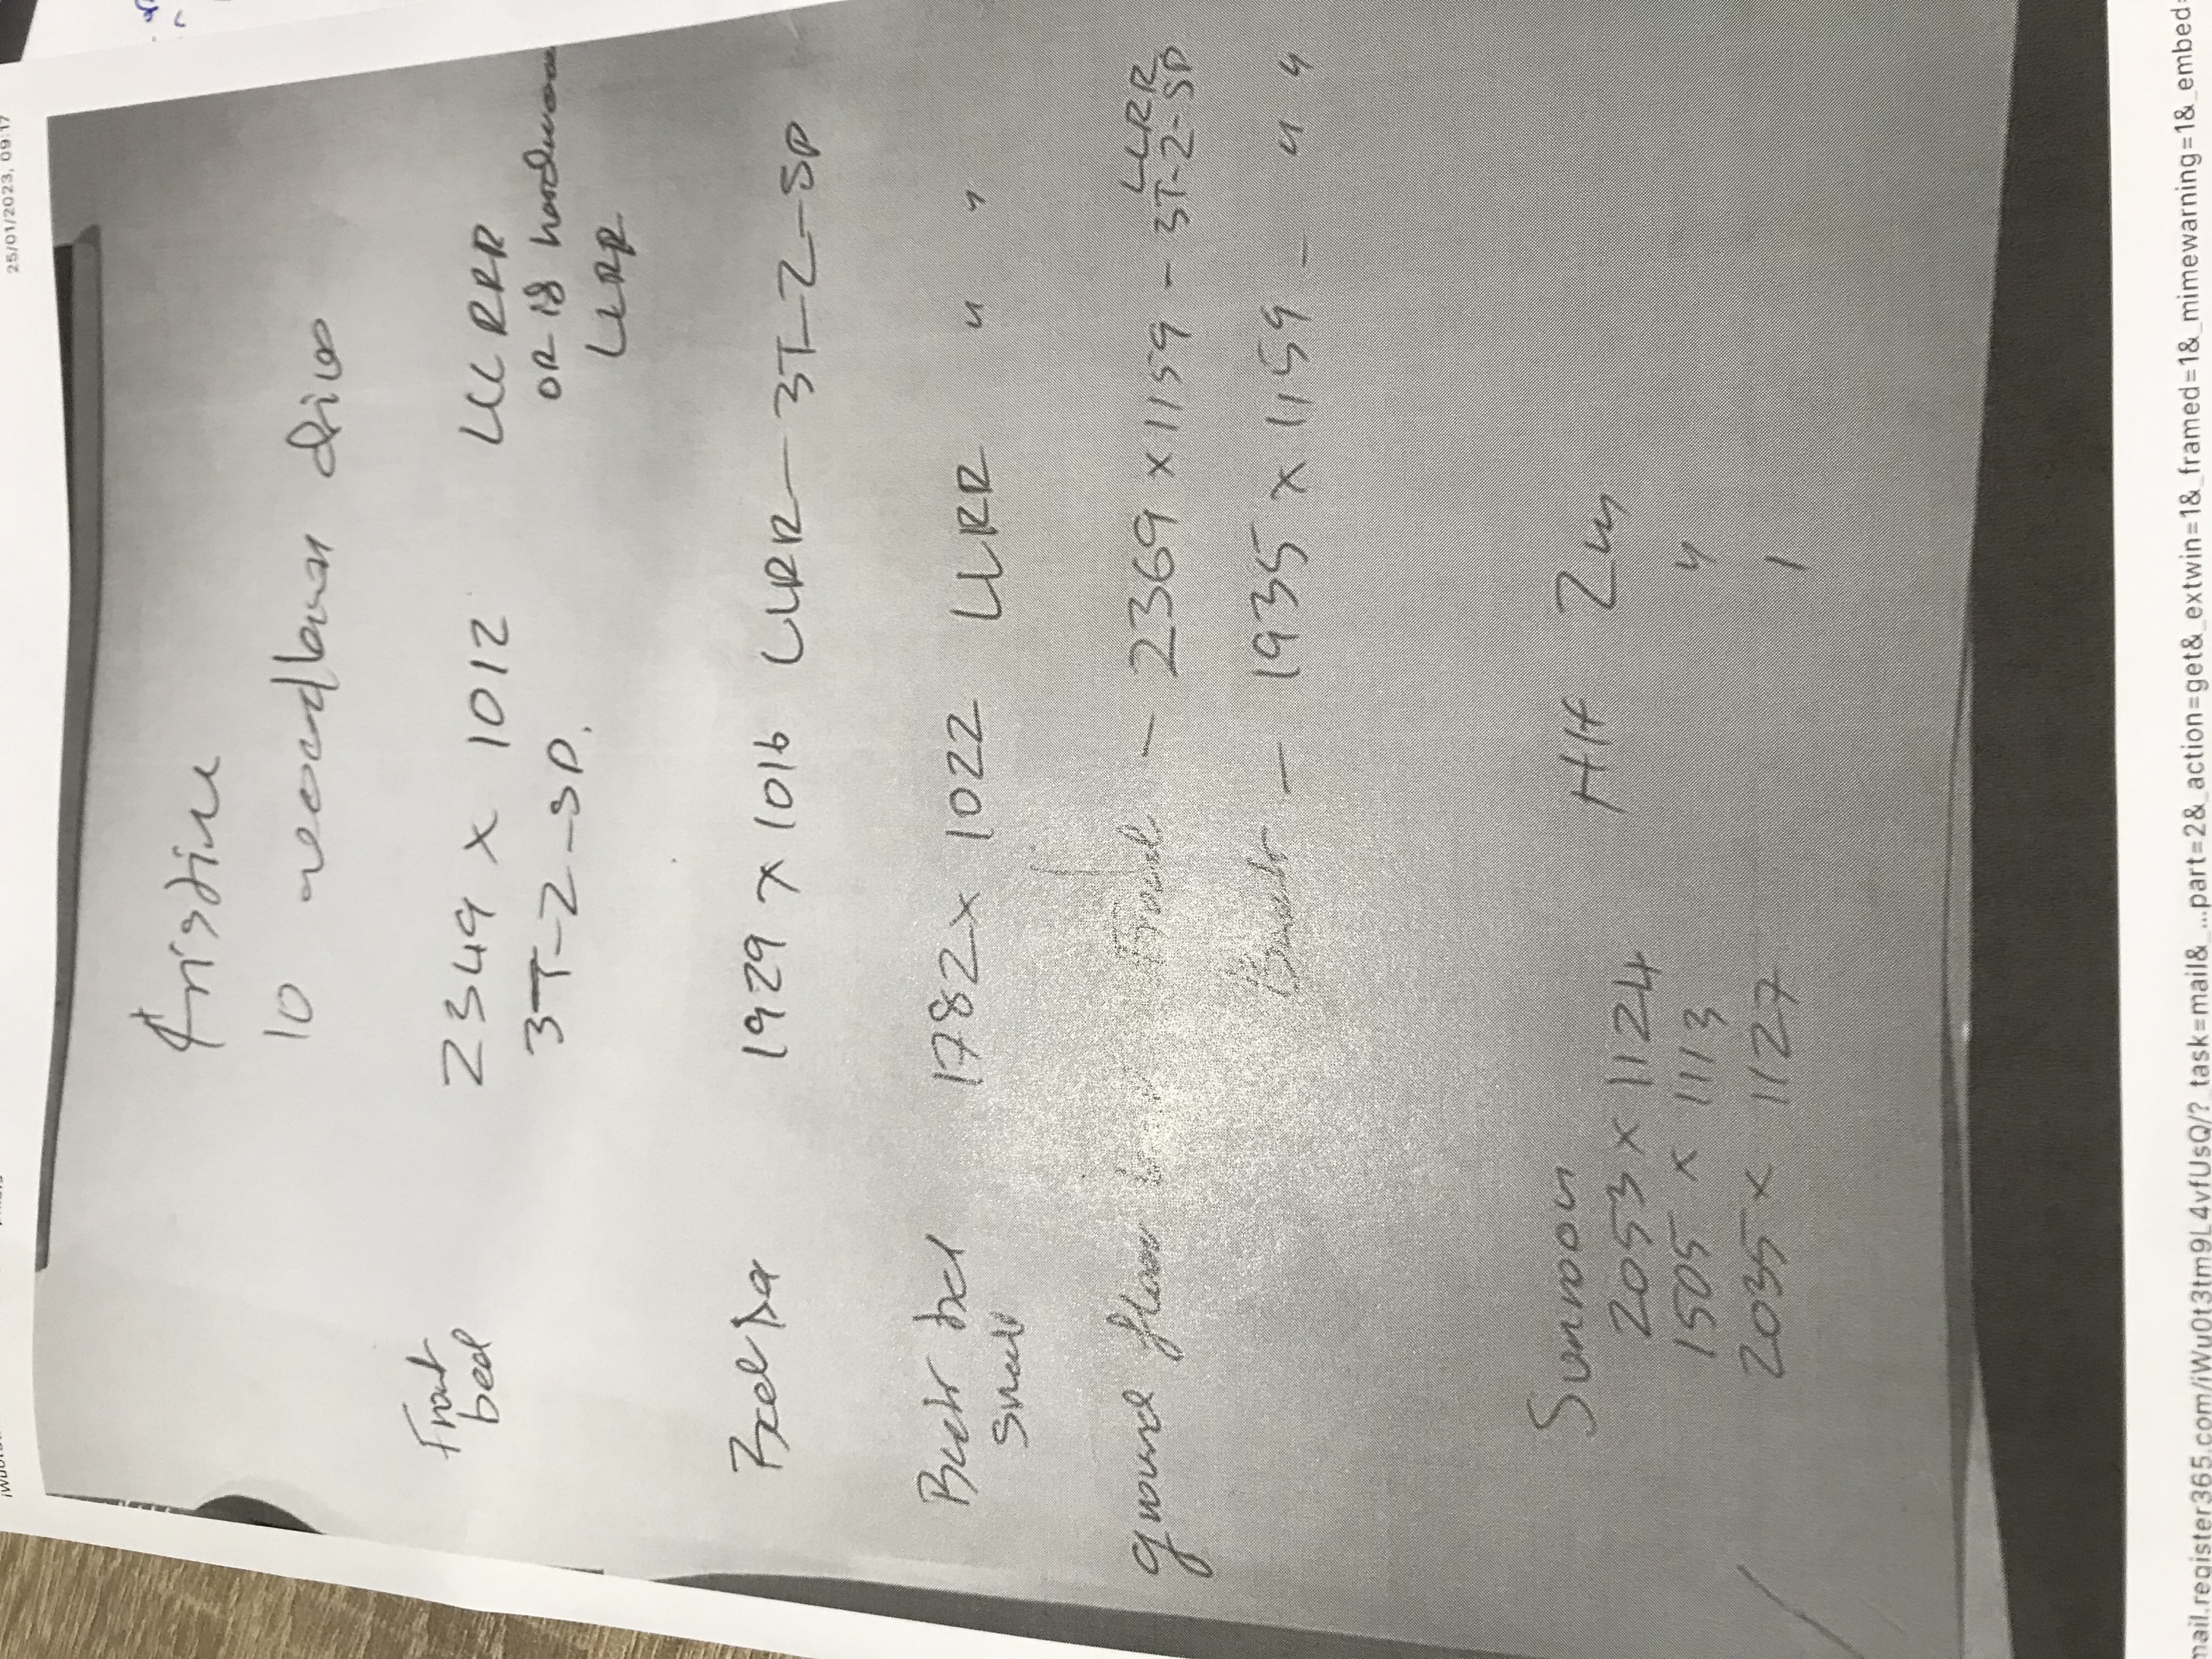 25/01/2023, 09:17
10
drive
Front
bed
2349 x 1012 LLL RRR
3T-Z-SP. OR is hardwood
LLRR
1929 x 1016 LLRR-3T-Z-SP
Back bed 1782 x 1022 LLRR " "
Small
ground floor Front - 2369 x 1159 - 3T-Z-SP
LLRR
Back - 1935 x 1159 - " "
Sunroom
2053 x 1124 HH Zm
1505 x 1113 "
2035 x 1127 1
mail.register365.com/iWu0t3tm9L4vfUsQ/?_task=mail&_...part=2&_action=get&_extwin=1&_framed=1&_mimewarning=1&_embed=